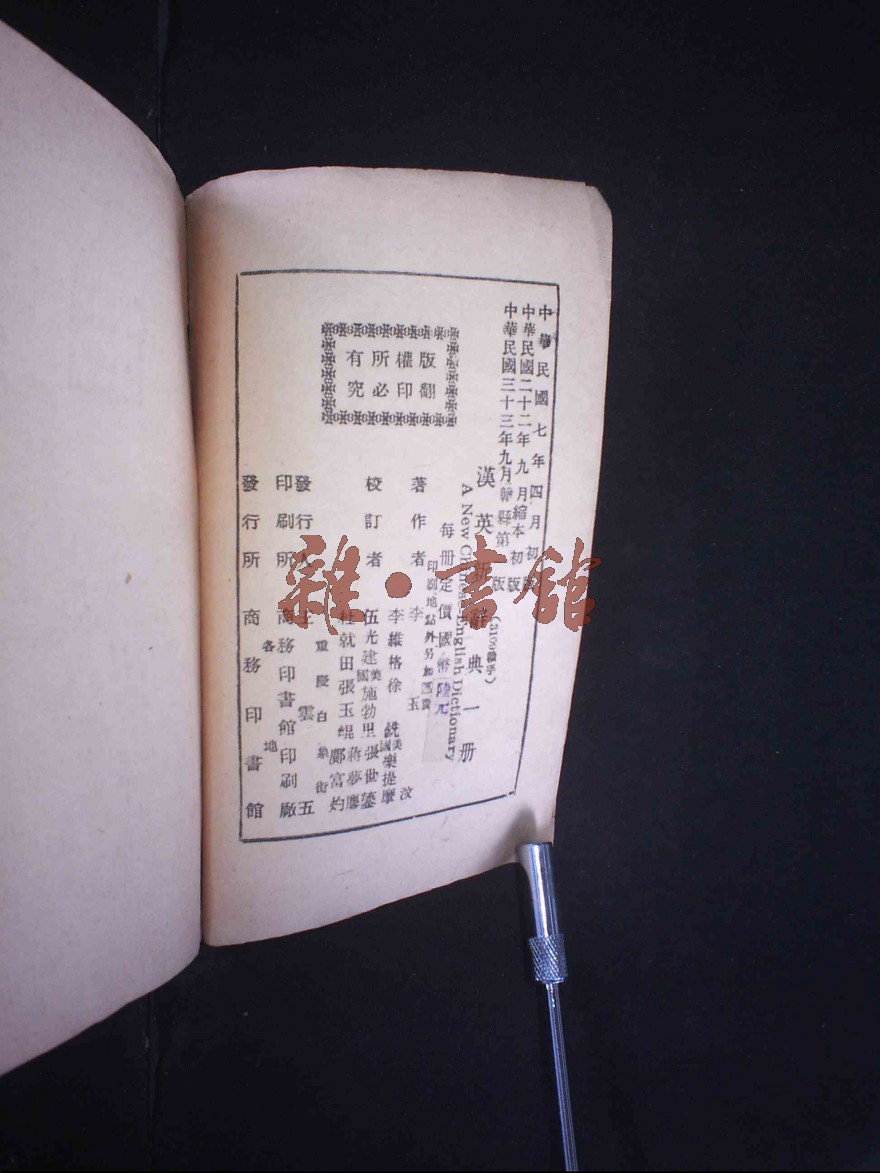 中華民國七年四月初版
中華民國二十二年九月縮本初版
中華民國三十三年九月贛縣第一版
(3109贛手)
漢英新辭典一册
A New Chinese-English Dictionary
每册定價國幣陸元
印刷地點外另加運費
版權所有
翻印必究
著作者 李玉汶
校訂者
李維格 徐銑 美國樂提摩
伍光建 美國施勃里 張世鎏
杜就田 張玉崐 蔣夢麐
鄺富灼
重慶白象街
發行人 王雲五
印刷所 商務印書館印刷廠
各地
發行所 商務印書館
雜·書館